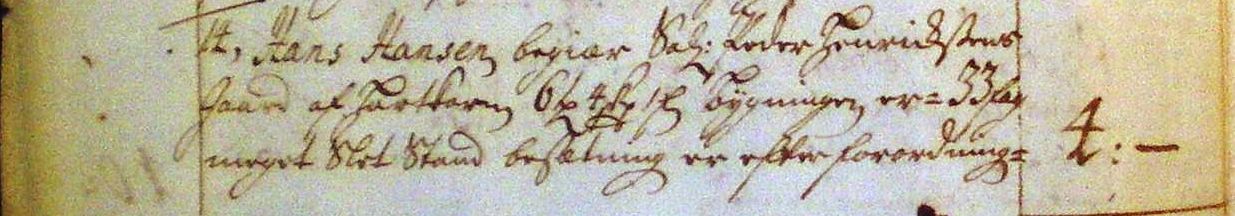 14, Hans Hansen, begiær Sal: Peder Henrichsens
Gaard af Hartkorn 6 td 4 skp 1 f bygningen er = 33 fag
meget Slet Stand besætning er efter forordning=
4: —